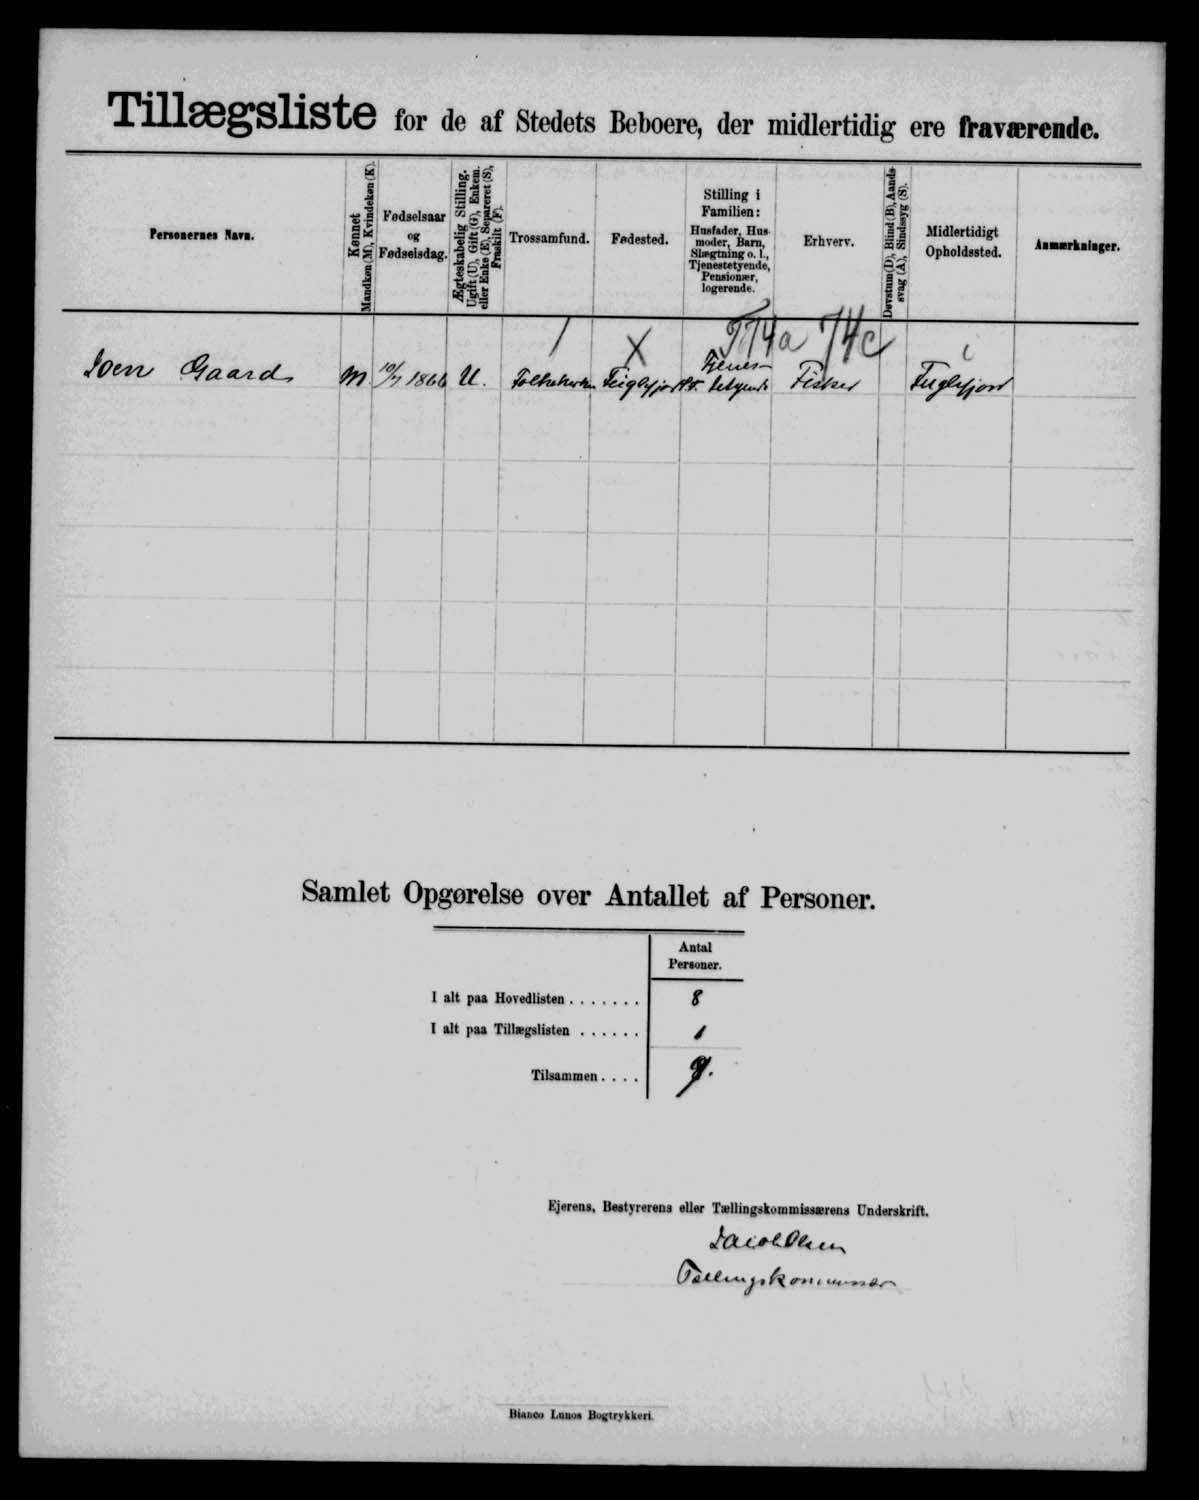 Tillægsliste for de af Stedets Beboere, der midlertidig ere fraværende.
Personernes Navn.
Kønnet
Mandkøn (M), Kvindekøn (K).
Fødselsaar
og
Fødselsdag.
Ægteskabelig Stilling.
Ugift (U), Gift (G), Enkem.
eller Enke (E), Separeret (S),
Fraskilt (F).
Trossamfund.
Fødested.
Stilling i
Familien:
Husfader, Hus-
moder, Barn,
Slægtning o. l.,
Tjenestetyende,
Pensionær,
logerende.
Erhverv.
Døvstum (D), Blind (B), Aands-
svag (A), Sindssyg (S).
Midlertidigt
Opholdssted.
Anmærkninger.
74a 74c
Joen Gaard M 10/7 1866 U. Folkekirken Fuglefjord Tjenes-
tetyende Fisker Fuglefjord
Samlet Opgørelse over Antallet af Personer.
Antal
Personer.
I alt paa Hovedlisten . . . . . . . 8
I alt paa Tillægslisten . . . . . . 1
Tilsammen . . . . 9.
Ejerens, Bestyrerens eller Tællingskommissærens Underskrift.
Jacob Olsen
Tællingskommissær
Bianco Lunos Bogtrykkeri.